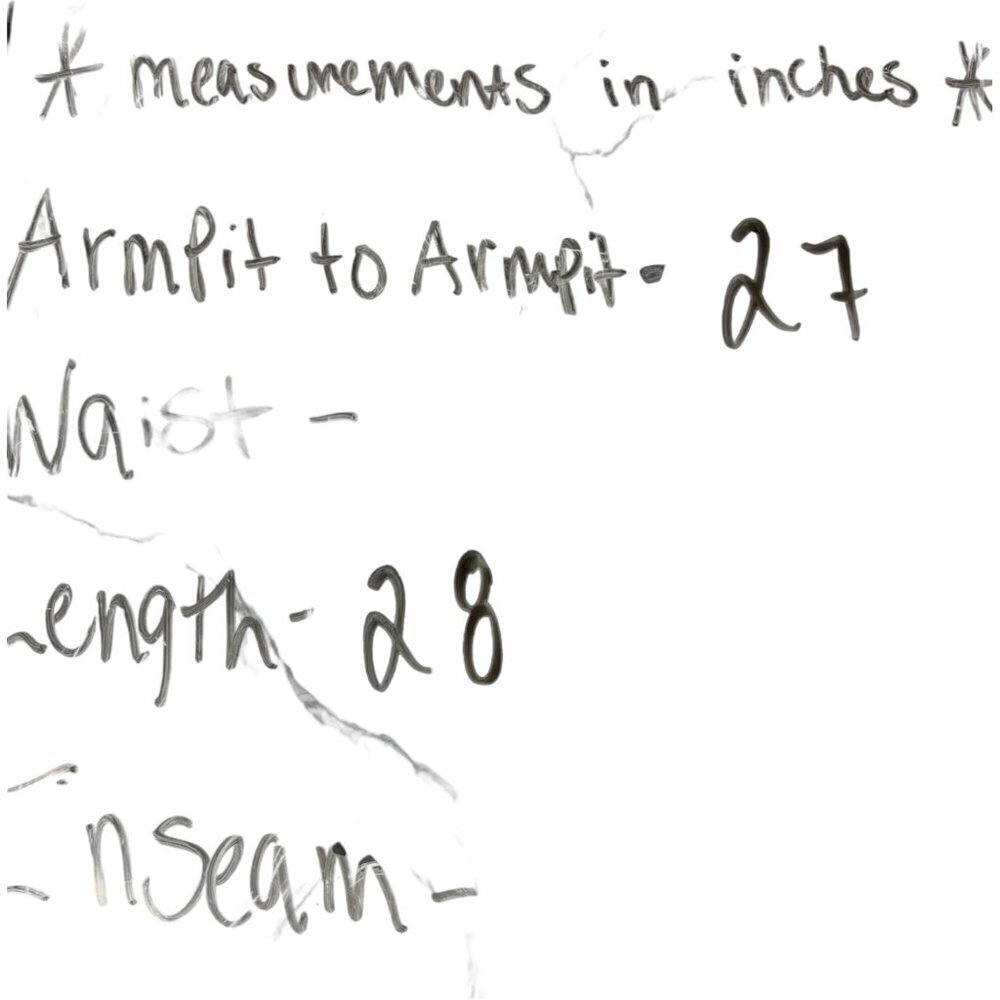 * measurements in inches *
Armpit to Armpit - 27
Waist -
Length - 28
Inseam -